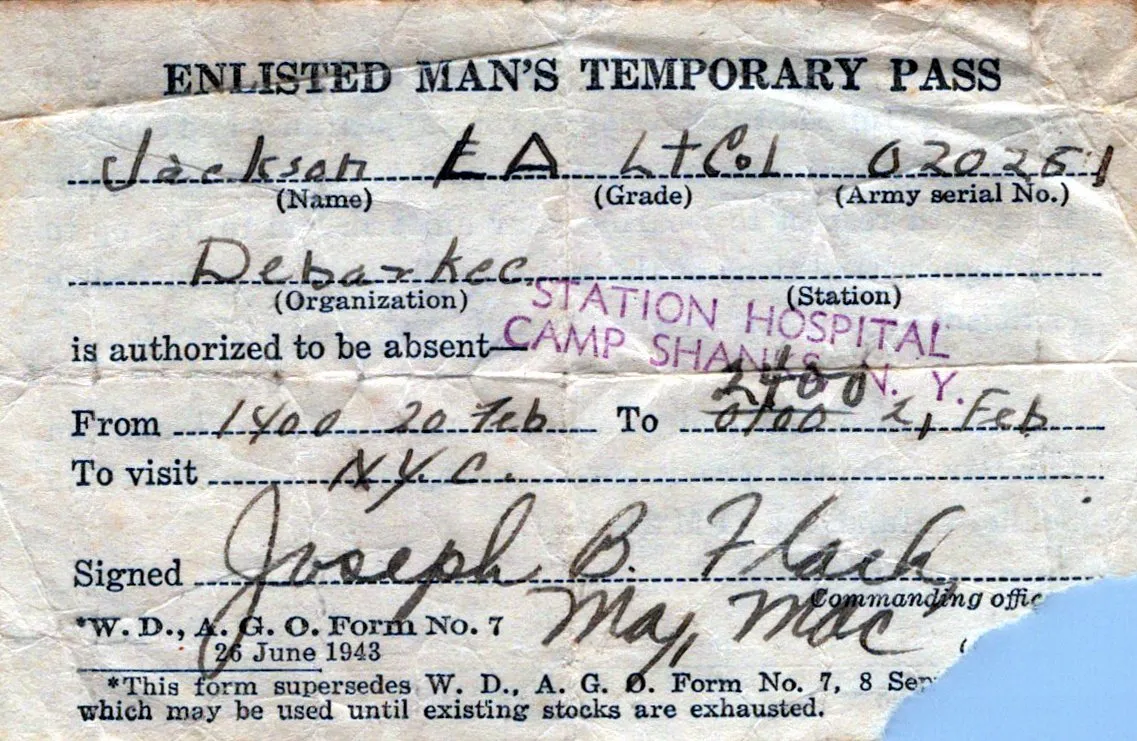 ENLISTED MAN'S TEMPORARY PASS
Jackson E A Lt Col 020261
(Name) (Grade) (Army serial No.)
Debarkee
(Organization) (Station)
STATION HOSPITAL
is authorized to be absent—
CAMP SHANKS N. Y.
2400
From 1400 20 Feb To 0100 21 Feb
To visit N.Y.C.
Signed Joseph B. Flack
Commanding offic
Maj, MAC
*W. D., A. G. O. Form No. 7
26 June 1943
*This form supersedes W. D., A. G. O. Form No. 7, 8 Sep
which may be used until existing stocks are exhausted.